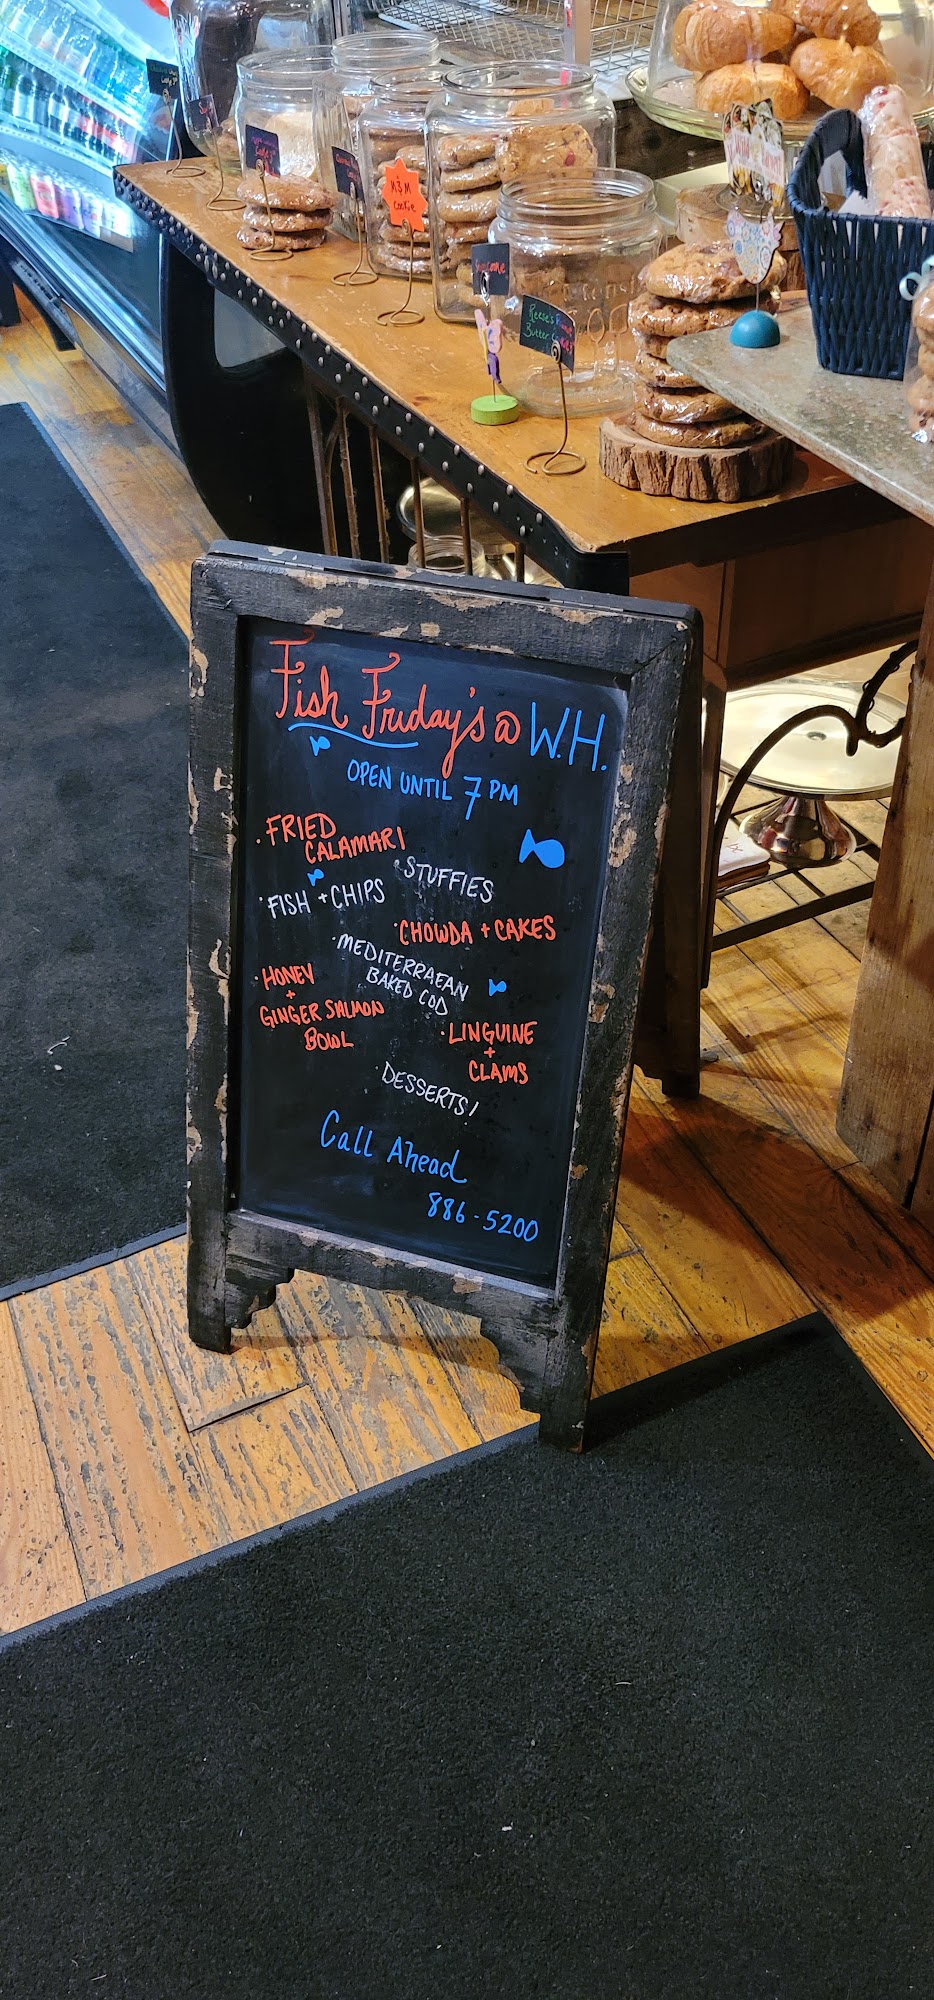 M&M
cookie
Reese's
Butter
Fish Friday's @ W.H.
OPEN UNTIL 7 PM
· FRIED
CALAMARI
· STUFFIES
· FISH + CHIPS
· CHOWDA + CAKES
· MEDITERRAEAN
BAKED COD
· HONEY
+
GINGER SALMON
BOWL
· LINGUINE
+
CLAMS
· DESSERTS!
Call Ahead
886-5200